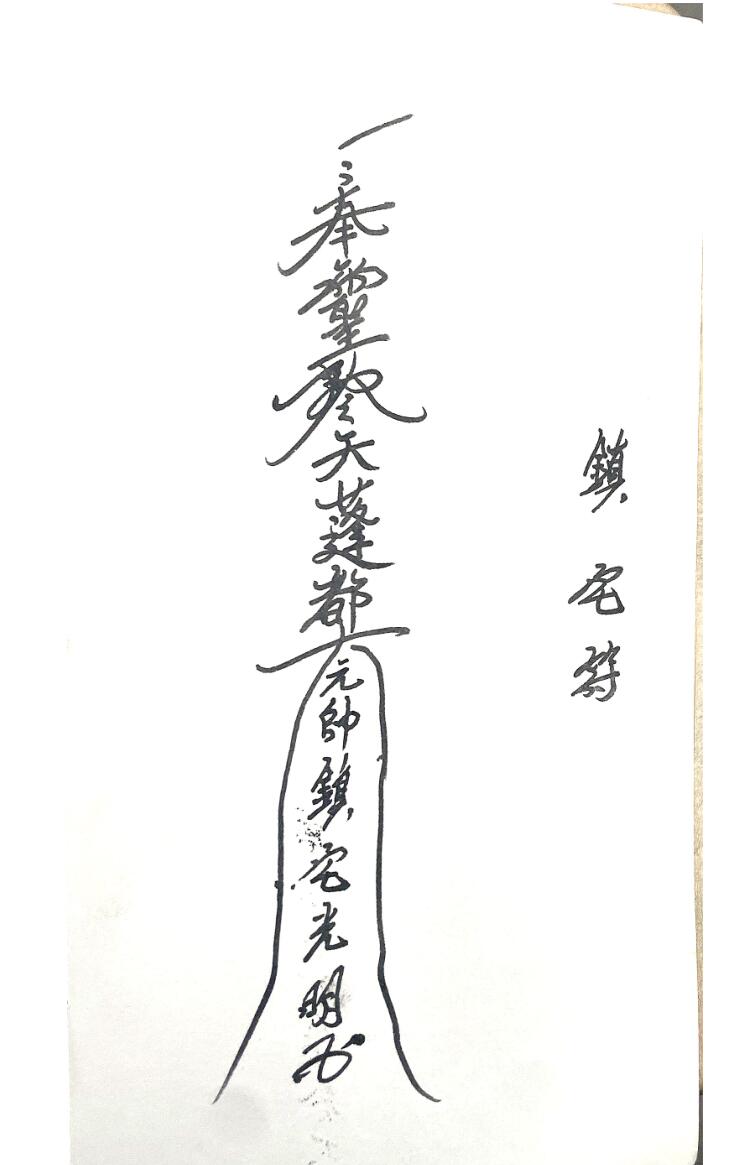 鎮宅符
奉天蓬都元帥鎮宅光明